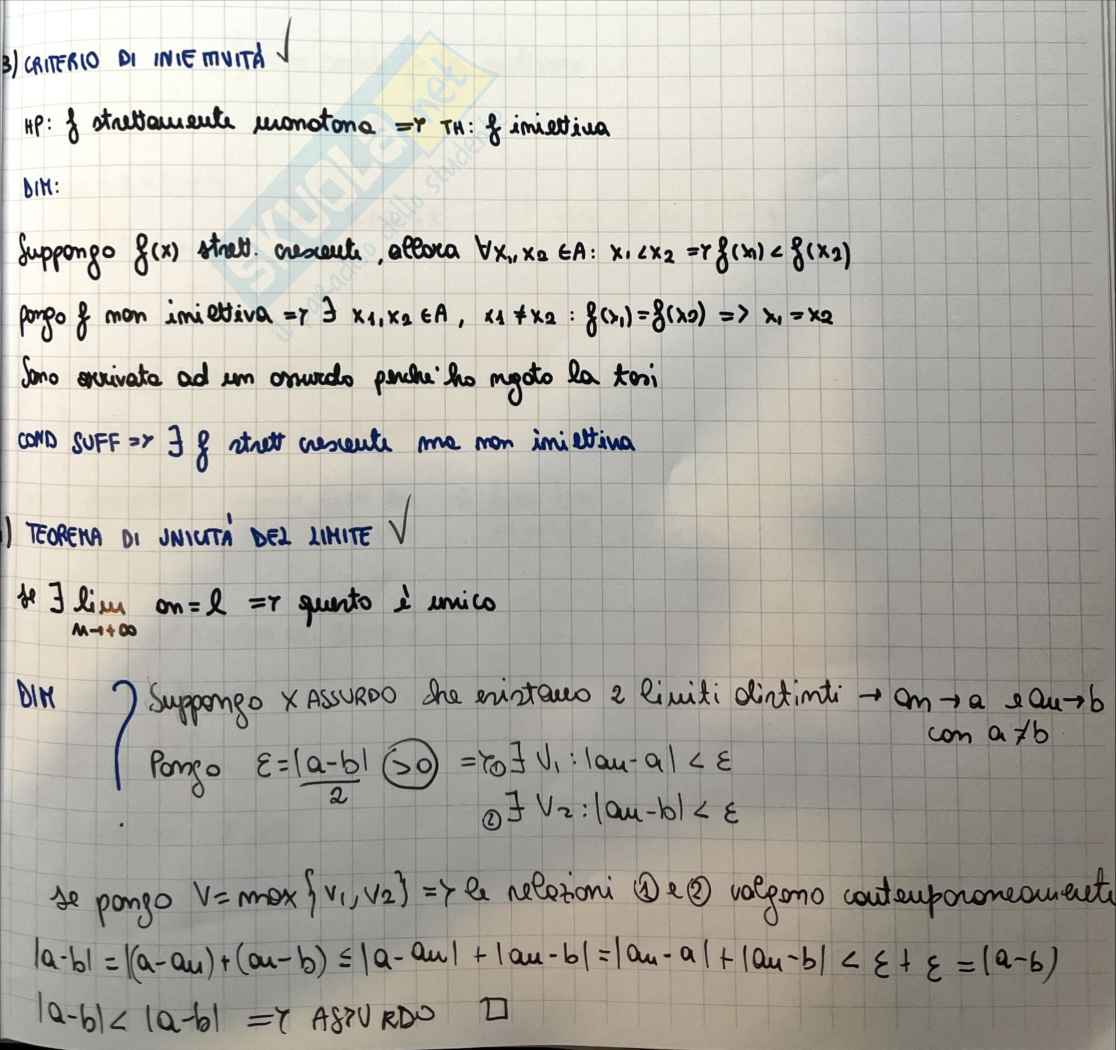 3) CRITERIO DI INIETTIVITÀ √
HP: f strettamente monotona => TH: f iniettiva
DIM:
Suppongo f(x) strett. crescente, allora ∀x₁,x₂ ∈A: x₁<x₂ => f(x₁) < f(x₂)
pongo f non iniettiva => ∃ x₁,x₂ ∈A, x₁ ≠ x₂ : f(x₁)=f(x₂) => x₁=x₂
Sono arrivata ad un assurdo perche' ho negato la tesi
COND SUFF => ∃ f strett crescente ma non iniettiva
) TEOREMA DI UNICITÀ DEL LIMITE √
se ∃ lim an = l => questo è unico
n→+∞
DIM Suppongo X ASSURDO che esistano 2 limiti distinti → an → a e an→b
con a≠b
Pongo ε = |a-b| >0 => ① ∃ V₁ : |an-a| < ε
2
② ∃ V₂ : |an-b| < ε
se pongo V = max {V₁, V₂} => le relazioni ① e ② valgono contemporaneamente
|a-b| = |(a-an)+(an-b) ≤ |a-an| + |an-b| = |an-a| + |an-b| < ε + ε = |a-b)
|a-b| < |a-b| => ASSURDO □
SKUOLA.net